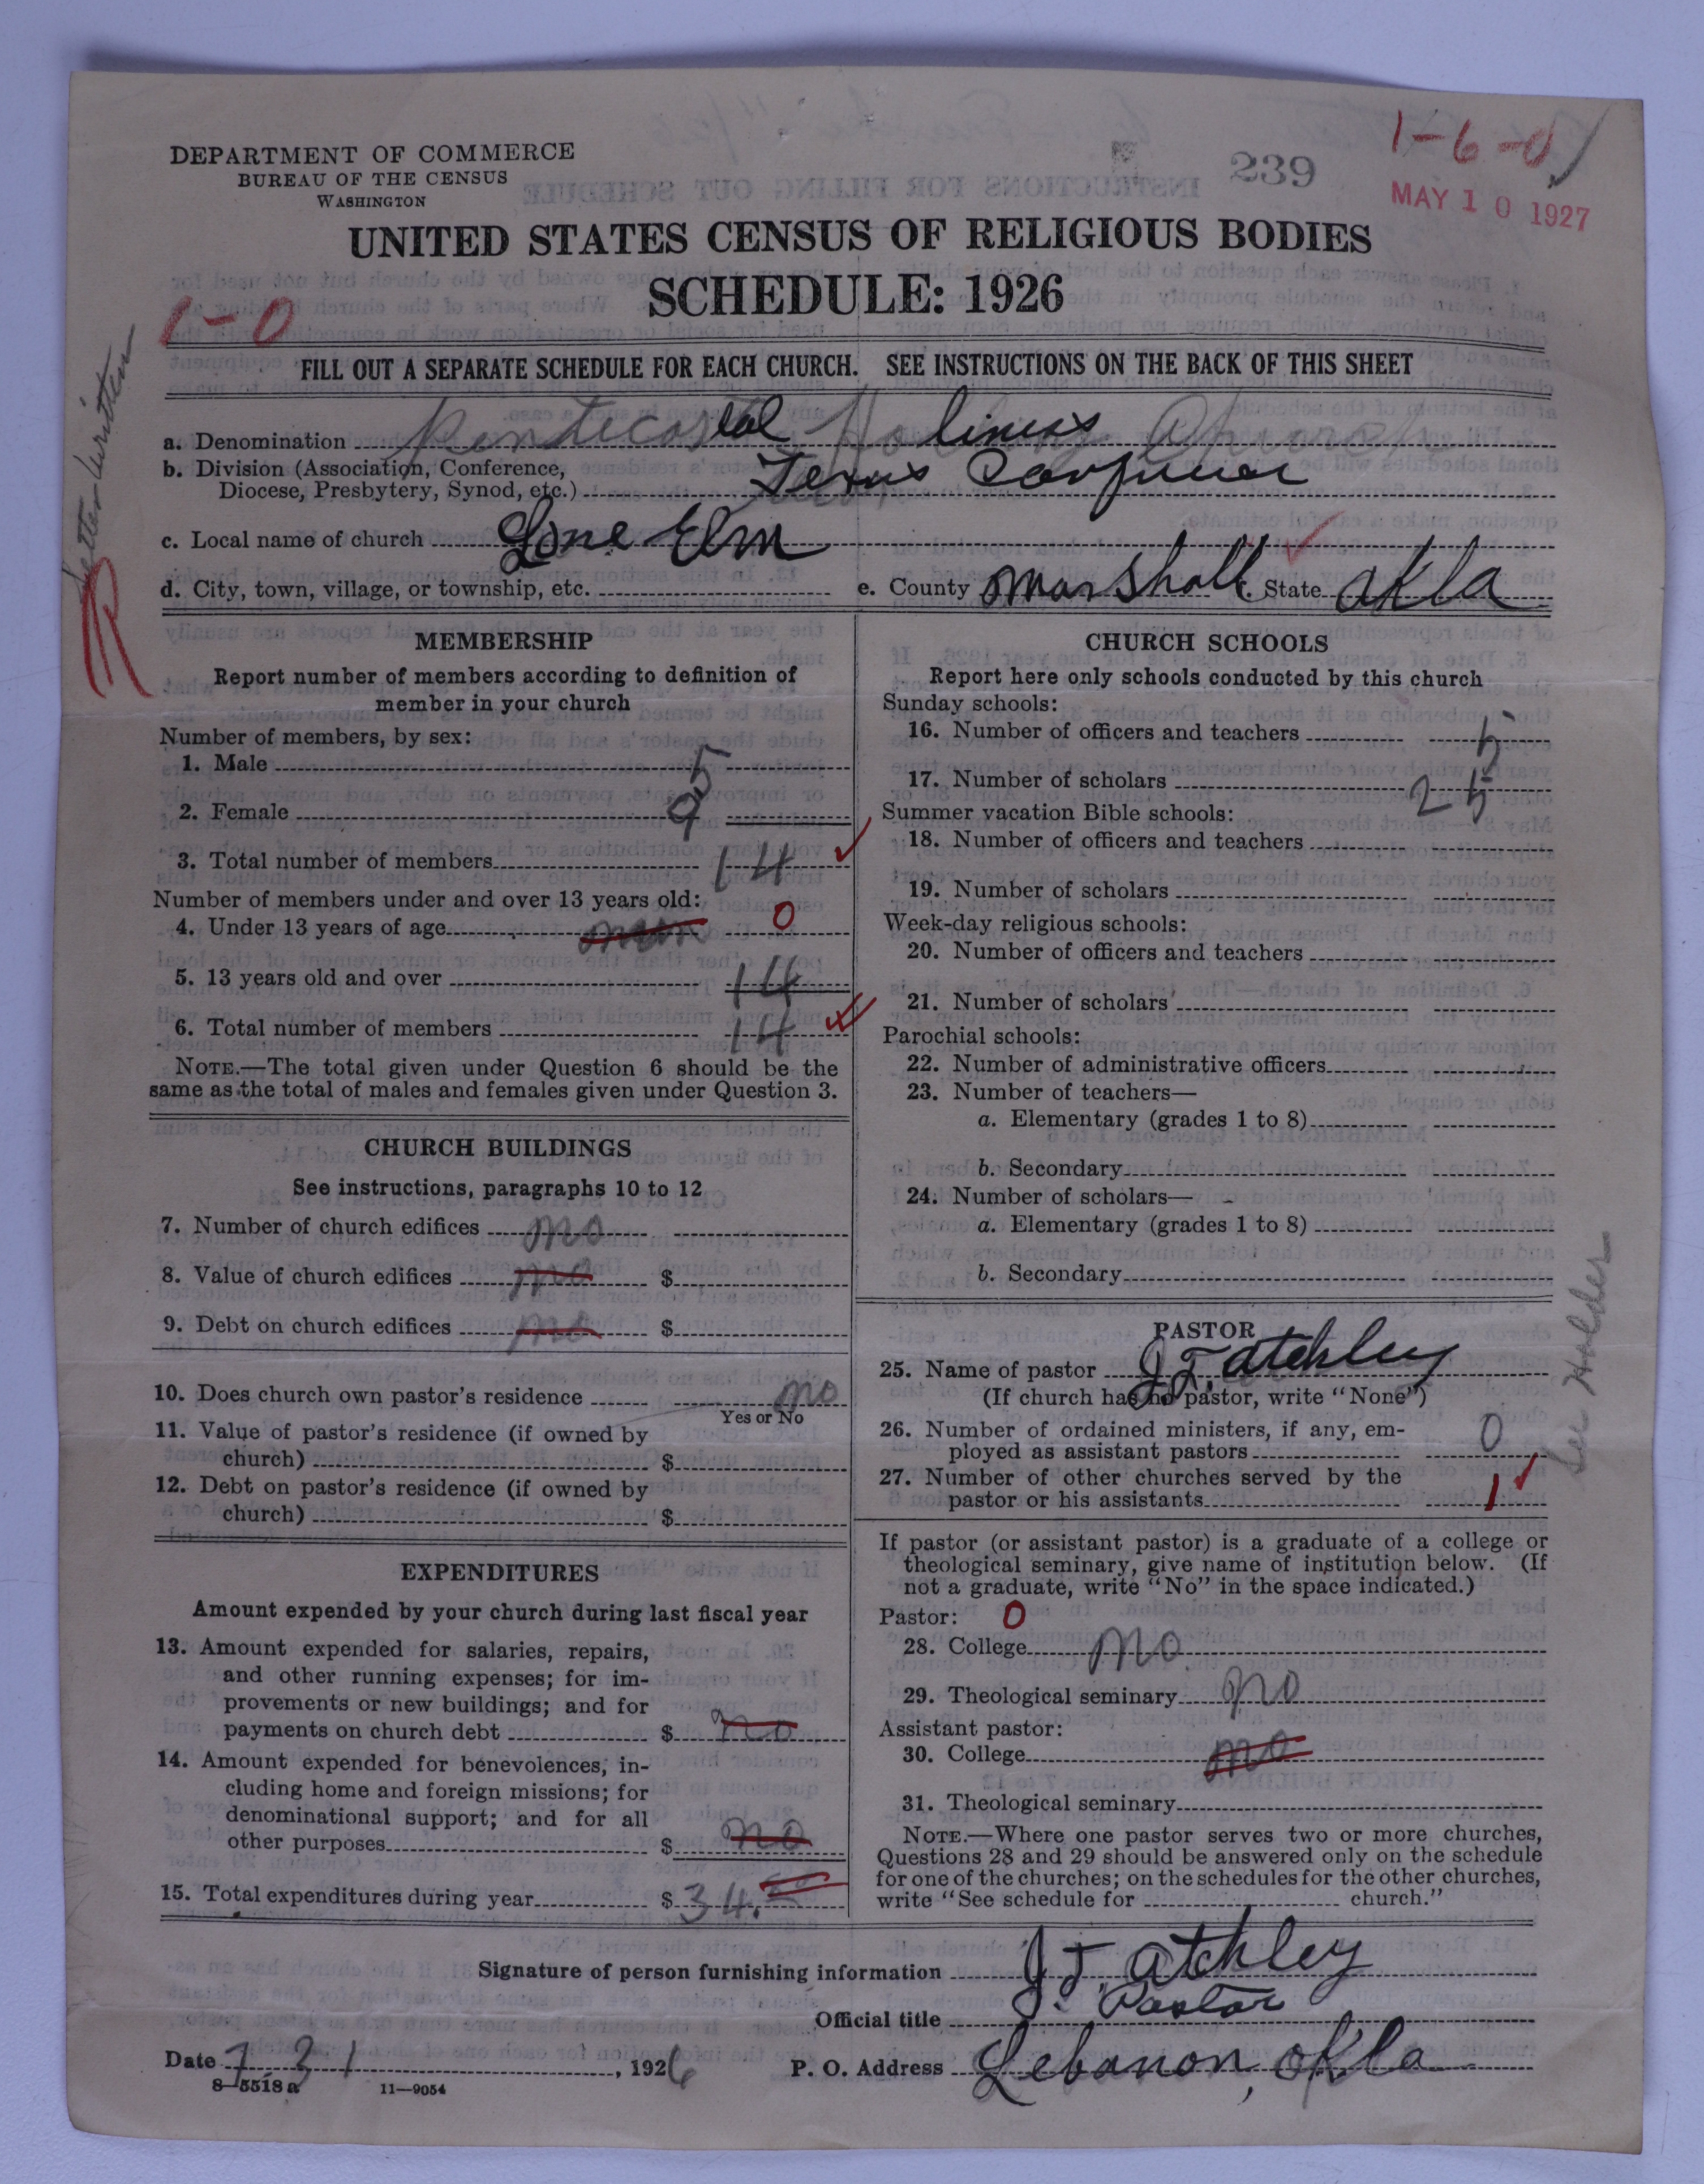 DEPARTMENT OF COMMERCE
BUREAU OF THE CENSUS
WASHINGTON
239
1-6-0
MAY 10 1927
UNITED STATES CENSUS OF RELIGIOUS BODIES
SCHEDULE: 1926
1-0
FILL OUT A SEPARATE SCHEDULE FOR EACH CHURCH. SEE INSTRUCTIONS ON THE BACK OF THIS SHEET
Letter written
a. Denomination Pentecostal Holiness Church
b. Division (Association, Conference,
Diocese, Presbytery, Synod, etc.) Texas
c. Local name of church Lone Elm
d. City, town, village, or township, etc. e. County Marshall f. State Okla
MEMBERSHIP
Report number of members according to definition of
member in your church
Number of members, by sex:
1. Male 5
2. Female 9
3. Total number of members 14
Number of members under and over 13 years old:
4. Under 13 years of age 0
5. 13 years old and over 14
6. Total number of members 14
NOTE.—The total given under Question 6 should be the
same as the total of males and females given under Question 3.
CHURCH BUILDINGS
See instructions, paragraphs 10 to 12
7. Number of church edifices no
8. Value of church edifices no $
9. Debt on church edifices no $
10. Does church own pastor's residence no
Yes or No
11. Value of pastor's residence (if owned by
church) $
12. Debt on pastor's residence (if owned by
church) $
EXPENDITURES
Amount expended by your church during last fiscal year
13. Amount expended for salaries, repairs,
and other running expenses; for im-
provements or new buildings; and for
payments on church debt $ no
14. Amount expended for benevolences, in-
cluding home and foreign missions; for
denominational support; and for all
other purposes $ no
15. Total expenditures during year $ 34.
CHURCH SCHOOLS
Report here only schools conducted by this church
Sunday schools:
16. Number of officers and teachers 5
17. Number of scholars 25
Summer vacation Bible schools:
18. Number of officers and teachers
19. Number of scholars
Week-day religious schools:
20. Number of officers and teachers
21. Number of scholars
Parochial schools:
22. Number of administrative officers
23. Number of teachers—
a. Elementary (grades 1 to 8)
b. Secondary
24. Number of scholars—
a. Elementary (grades 1 to 8)
b. Secondary
PASTOR
25. Name of pastor J. T. Atchley
(If church has no pastor, write "None")
26. Number of ordained ministers, if any, em-
ployed as assistant pastors 0
27. Number of other churches served by the
pastor or his assistants 1
See Holder
If pastor (or assistant pastor) is a graduate of a college or
theological seminary, give name of institution below. (If
not a graduate, write "No" in the space indicated.)
Pastor: 0
28. College no
29. Theological seminary no
Assistant pastor:
30. College no
31. Theological seminary
NOTE.—Where one pastor serves two or more churches,
Questions 28 and 29 should be answered only on the schedule
for one of the churches; on the schedules for the other churches,
write "See schedule for church."
Signature of person furnishing information J. T. Atchley
Official title Pastor
Date 7 31, 1926 P. O. Address Lebanon, Okla
8-5518 a 11-9054